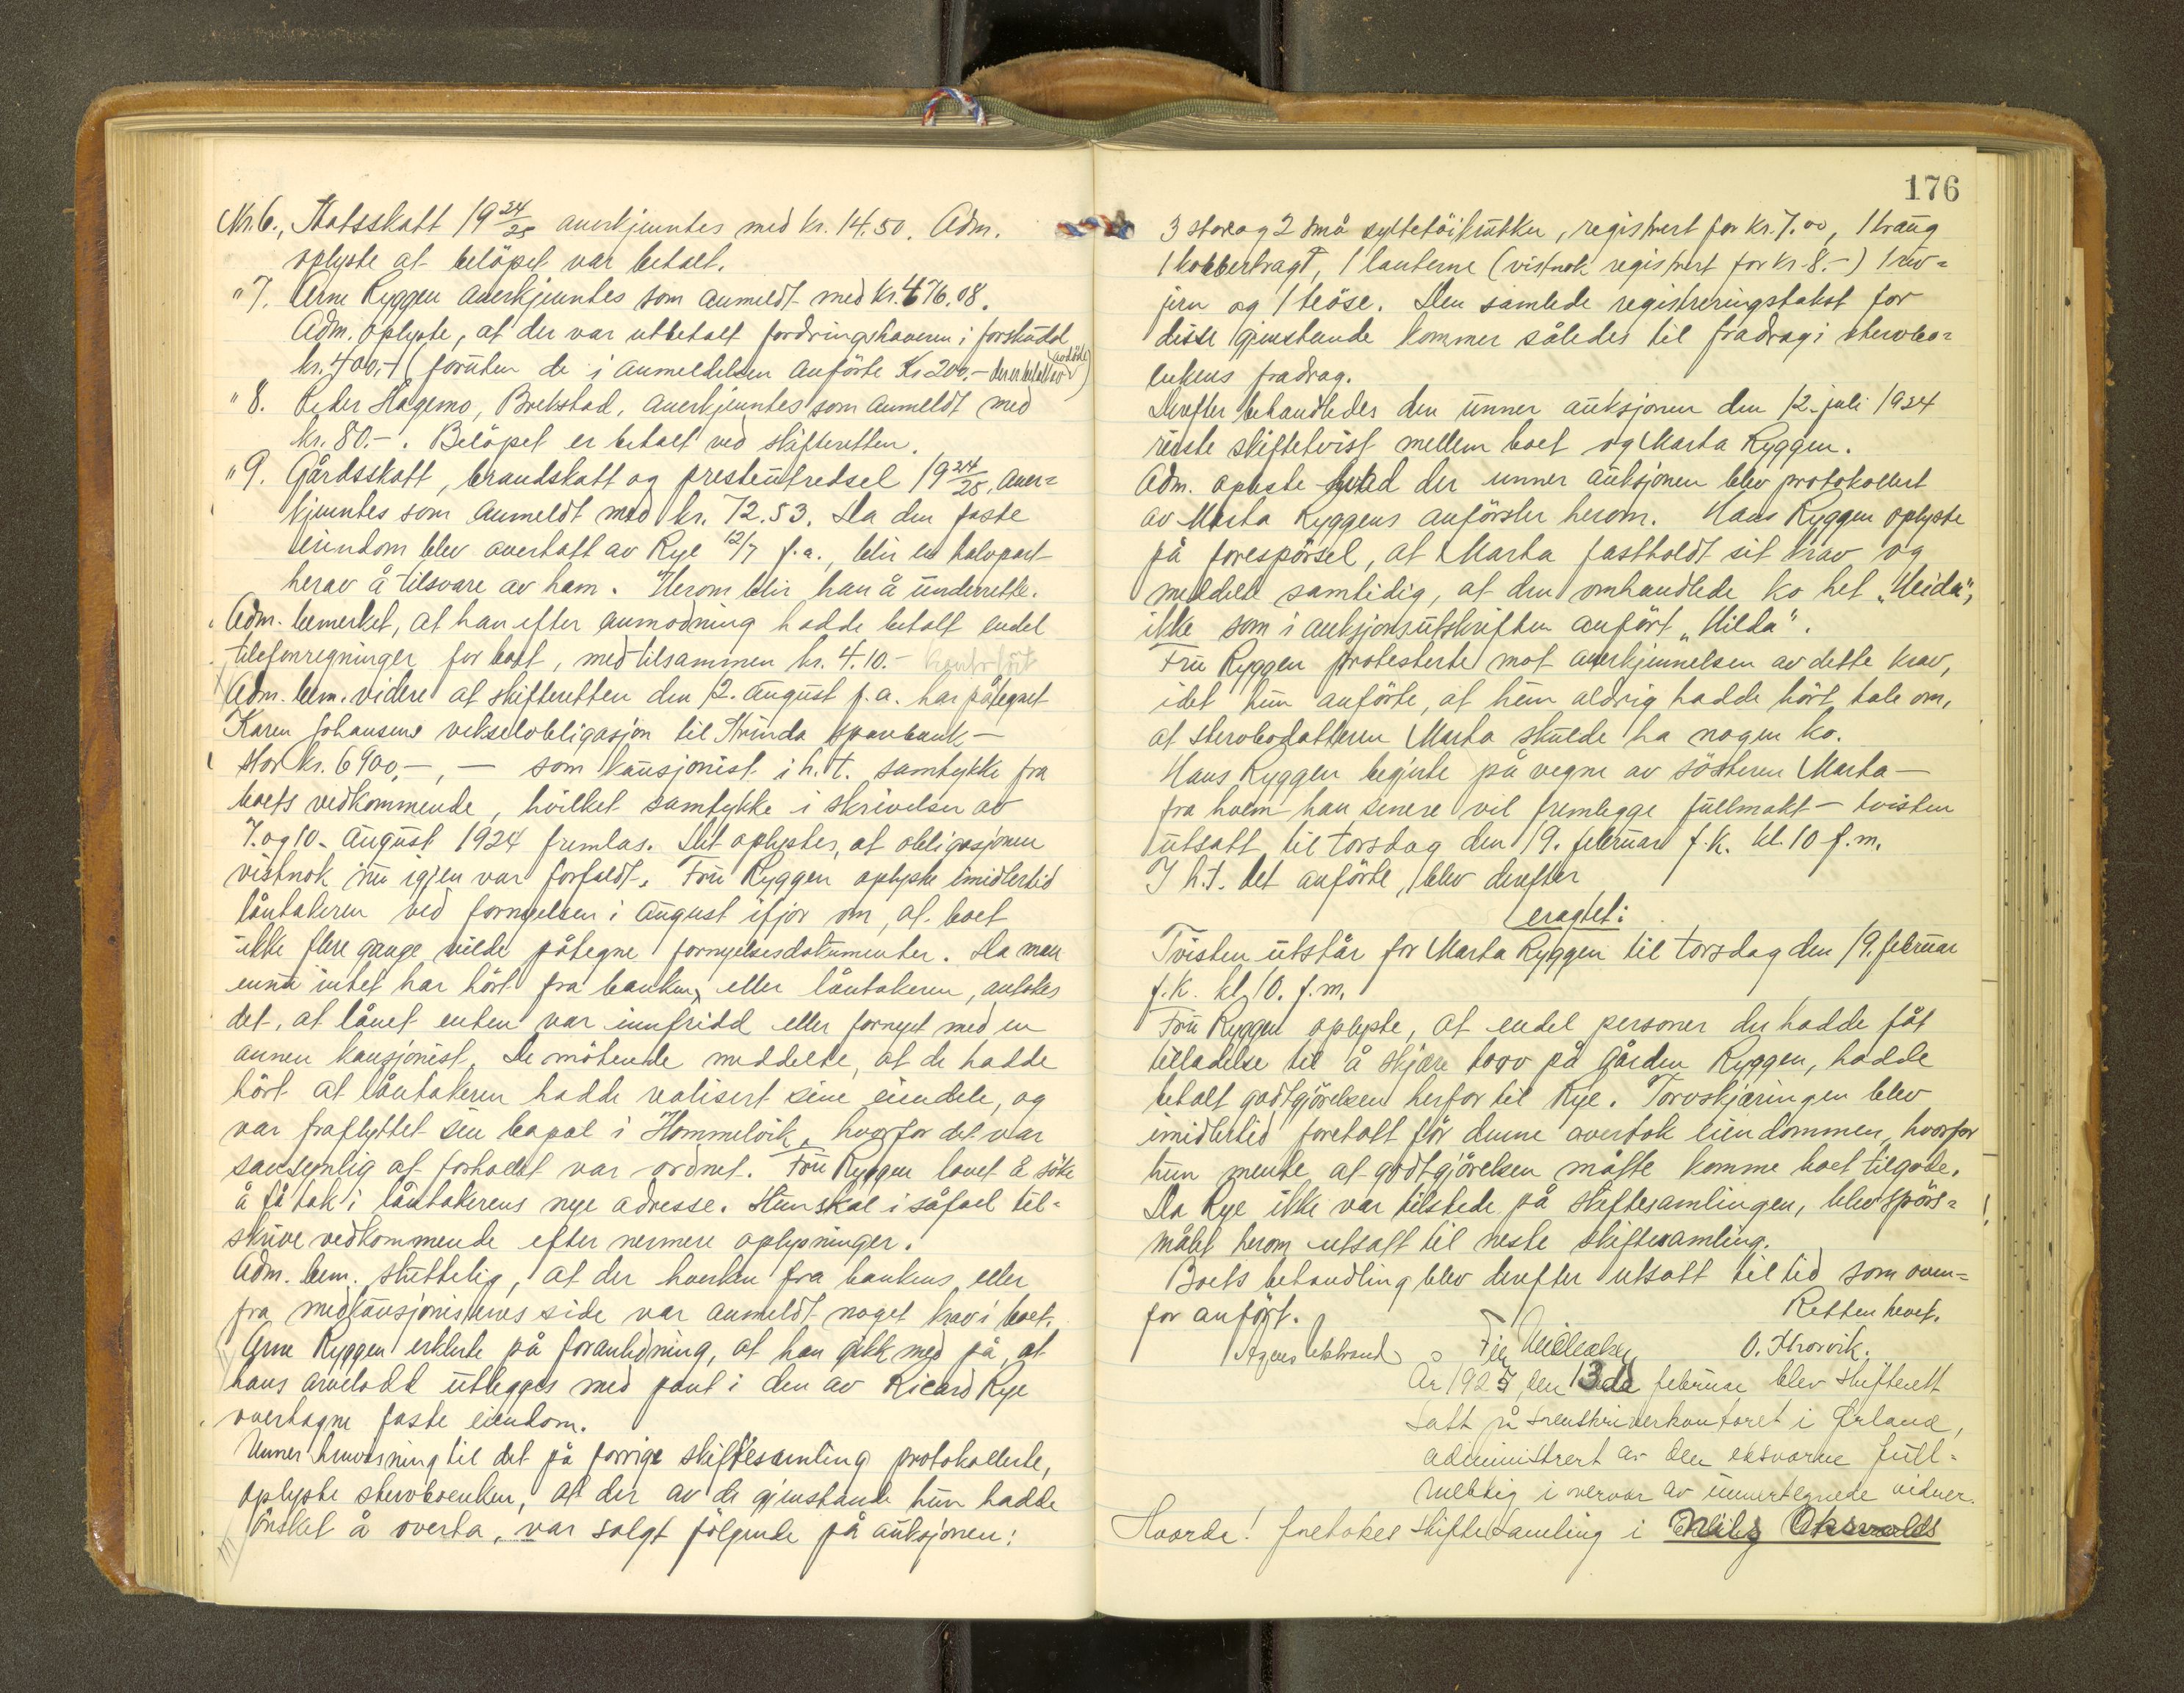 Nr. 6., Statsskatt 19 24/25 anerkjenntes med kr. 14.50. Adm.
oplyste at belöpet var betalt.
" 7. Arne Ryggen anerkjenntes som anmeldt med kr. 476.08.
Adm. oplyste, at der var utbetalt fordringshaveren i forskudd
kr. 400,- (foruten de i anmeldelsen anförte Kr 200.- der er betalt av avdöde)
" 8. Peder Hagemo, Brekstad, anerkjenntes som anmeldt med
kr. 80.-. Belöpet er betalt ved skifteretten.
" 9. Gårdsskatt, brandskatt og presteutredsel 19 24/25, aner=
kjenntes som anmeldt med kr. 72.53. Da den faste
eiendom blev overtatt av Rye 12/7 f.a., blir en halvpart
herav å tilsvare av ham. Herom blir han å underrette.
Adm. bemerket, at han efter anmodning hadde betalt endel
telefonregninger for boet, med tilsammen kr. 4.10.-
Adm. bem. videre at skifteretten den 12. august f.a. har påtegnet
Karen Johansens vekselobligasjon til Strinda sparebank -
stor kr. 6900,-, - som kausjonist i h.t. samtykke fra
boets vedkommende, hvilket samtykke i skrivelser av
7. og 10. august 1924 fremlas. Det oplystes, at obligasjonen
vistnok nu igjen var forfaldt. Fru Ryggen oplyste imidlertid
låntakeren ved fornyelsen i august ifjor om, at boet
ikke flere gange vilde påtegne fornyelsesdokumenter. Da man
ennu intet har hört fra banken, eller låntakeren, antokes
det, at lånet enten var innfridd eller fornyet med en
annen kausjonist. De mötende meddelte, at de hadde
hört at låntakeren hadde realisert sine eiendele, og
var fraflyttet sin bopæl i Hommelvik, hvorfor det var
sansynlig at forholdet var ordnet. Fru Ryggen lovet å söke
å få tak i låntakerens nye adresse. Hun skal i såfael til=
skrive vedkommende efter nermere oplysninger.
Adm. bem. sluttelig, at der hverken fra bankens eller
fra medkausjonistenes side var anmeldt noget krav i boet.
Arne Ryggen erklerte på foranledning, at han gikk med på, at
hans arvelodd utlegges med pant i den av Ricard Rye
overtagne faste eiendom.
Unner henvisning til det på forrige skiftesamling protokollerte,
oplyste stervboenken, at der av de gjenstande hun hadde
önsket å overta, var solgt fölgende på auksjonen:
176
3 store og 2 små syltetöikrukker, registrert for kr. 7.00, 1 traug
1 kobbertragt, 1 lanterne (vistnok registrert for kr. 8.-) 1 riv=
jern og 1 teöse. Den samlede registreringstakst for
disse gjenstande kommer således til fradrag i stervbo=
enkens fradrag.
Derefter behandledes den unner auksjonen den 12. juli 1924
reiste skiftetvist mellem boet og Marta Ryggen.
Adm. oplyste hvad der unner auksjonen blev protokollert
av Marta Ryggens anförsler herom. Hans Ryggen oplyste
på forespörsel, at Marta fastholdt sit krav og
meddelte samtidig, at den omhandlede ko het "Heida",
ikke som i auksjonsutskriften anfört "Hilda".
Fru Ryggen protesterte mot anerkjennelsen av dette krav,
idet hun anförte, at hun aldrig hadde hört tale om,
at stervbodatteren Marta skulde ha nogen ko.
Hans Ryggen begjerte på vegne av sösteren Marta -
fra hvem han senere vil fremlegge fullmakt - tvisten
utsatt til torsdag den 19. februar f.k. kl. 10 f.m.
I h.t. det anförte, blev derefter
eragtet:
Tvisten utstår for Marta Ryggen til torsdag den 19. februar
f.k. kl. 10. f.m.
Fru Ryggen oplyste, at endel personer der hadde fåt
tilladelse til å skjære torv på gården Ryggen, hadde
betalt godtgjörelsen herfor til Rye. Torvskjæringen blev
imidlertid foretatt för denne overtok eiendommen, hvorfor
hun mente at godtgjörelsen måtte komme boet tilgode.
Da Rye ikke var tilstede på skiftesamlingen, blev spörs=
målet herom utsatt til neste skiftesamling.
Boets behandling blev derefter utsatt til tid som oven=
for anfört.
Retten hevet.
Agnes O. Hrovik.
År 1925 den 13de februar blev skifterett
satt på sorenskriverkontoret i Ørland,
administrert av den edsvorne full=
mektig i nervær av unnertegnede vidner.
Hvorda! foretokes skiftesamling i